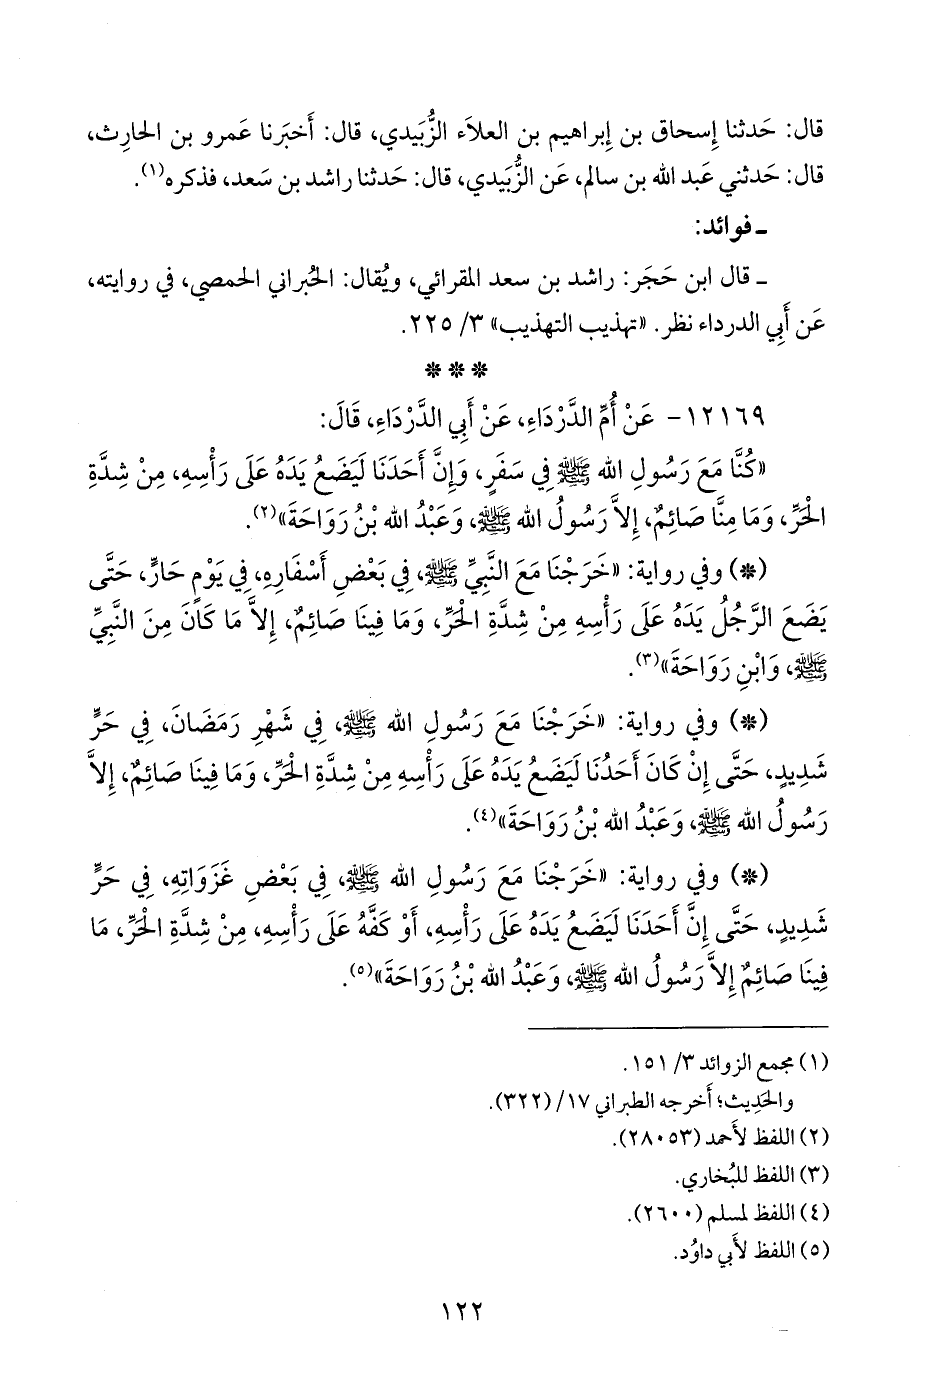 قال: حَدثنا إِسحاق بن إِبراهيم بن العلاَء الزُّبَيدي، قال: أَخبَرنا عَمرو بن الحارِث،
قال: حَدثني عَبد الله بن سالم، عَن الزُّبَيدي، قال: حَدثنا راشد بن سَعد، فذكره(١).
ـ فوائد:
ـ قال ابن حَجَر: راشد بن سعد المقرائي، ويُقال: الحُبراني الحمصي، في روايته،
عَن أَبي الدرداء نظر. «تهذيب التهذيب» ٣/ ٢٢٥.
* * *
١٢١٦٩- عَنْ أُمِّ الدَّرْدَاءِ، عَنْ أَبِي الدَّرْدَاءِ، قَالَ:
«كُنَّا مَعَ رَسُولِ الله ﷺ فِي سَفَرٍ، وَإِنَّ أَحَدَنَا لَيَضَعُ يَدَهُ عَلَى رَأْسِهِ، مِنْ شِدَّةِ
الْحَرِّ، وَمَا مِنَّا صَائِمٌ، إِلاَّ رَسُولُ الله ﷺ، وَعَبْدُ الله بْنُ رَوَاحَةَ»(٢).
(*) وفي رواية: «خَرَجْنَا مَعَ النَّبِيِّ ﷺ، فِي بَعْضِ أَسْفَارِهِ، فِي يَوْمٍ حَارٍّ، حَتَّى
يَضَعَ الرَّجُلُ يَدَهُ عَلَى رَأْسِهِ مِنْ شِدَّةِ الْحَرِّ، وَمَا فِينَا صَائِمٌ، إِلاَّ مَا كَانَ مِنَ النَّبِيِّ
ﷺ، وَابْنِ رَوَاحَةَ»(٣).
(*) وفي رواية: «خَرَجْنَا مَعَ رَسُولِ الله ﷺ، فِي شَهْرِ رَمَضَانَ، فِي حَرٍّ
شَدِيدٍ، حَتَّى إِنْ كَانَ أَحَدُنَا لَيَضَعُ يَدَهُ عَلَى رَأْسِهِ مِنْ شِدَّةِ الْحَرِّ، وَمَا فِينَا صَائِمٌ، إِلاَّ
رَسُولُ الله ﷺ، وَعَبْدُ الله بْنُ رَوَاحَةَ»(٤).
(*) وفي رواية: «خَرَجْنَا مَعَ رَسُولِ الله ﷺ، فِي بَعْضِ غَزَوَاتِهِ، فِي حَرٍّ
شَدِيدٍ، حَتَّى إِنَّ أَحَدَنَا لَيَضَعُ يَدَهُ عَلَى رَأْسِهِ، أَوْ كَفَّهُ عَلَى رَأْسِهِ، مِنْ شِدَّةِ الْحَرِّ، مَا
فِينَا صَائِمٌ إِلاَّ رَسُولُ الله ﷺ، وَعَبْدُ الله بْنُ رَوَاحَةَ»(٥).
(١) مجمع الزوائد ٣/ ١٥١.
والحَدِيث؛ أَخرجه الطبراني ١٧/ (٣٢٢).
(٢) اللفظ لأَحمد (٢٨٠٥٣).
(٣) اللفظ للبُخاري.
(٤) اللفظ لمسلم (٢٦٠٠).
(٥) اللفظ لأَبي داوُد.
١٢٢